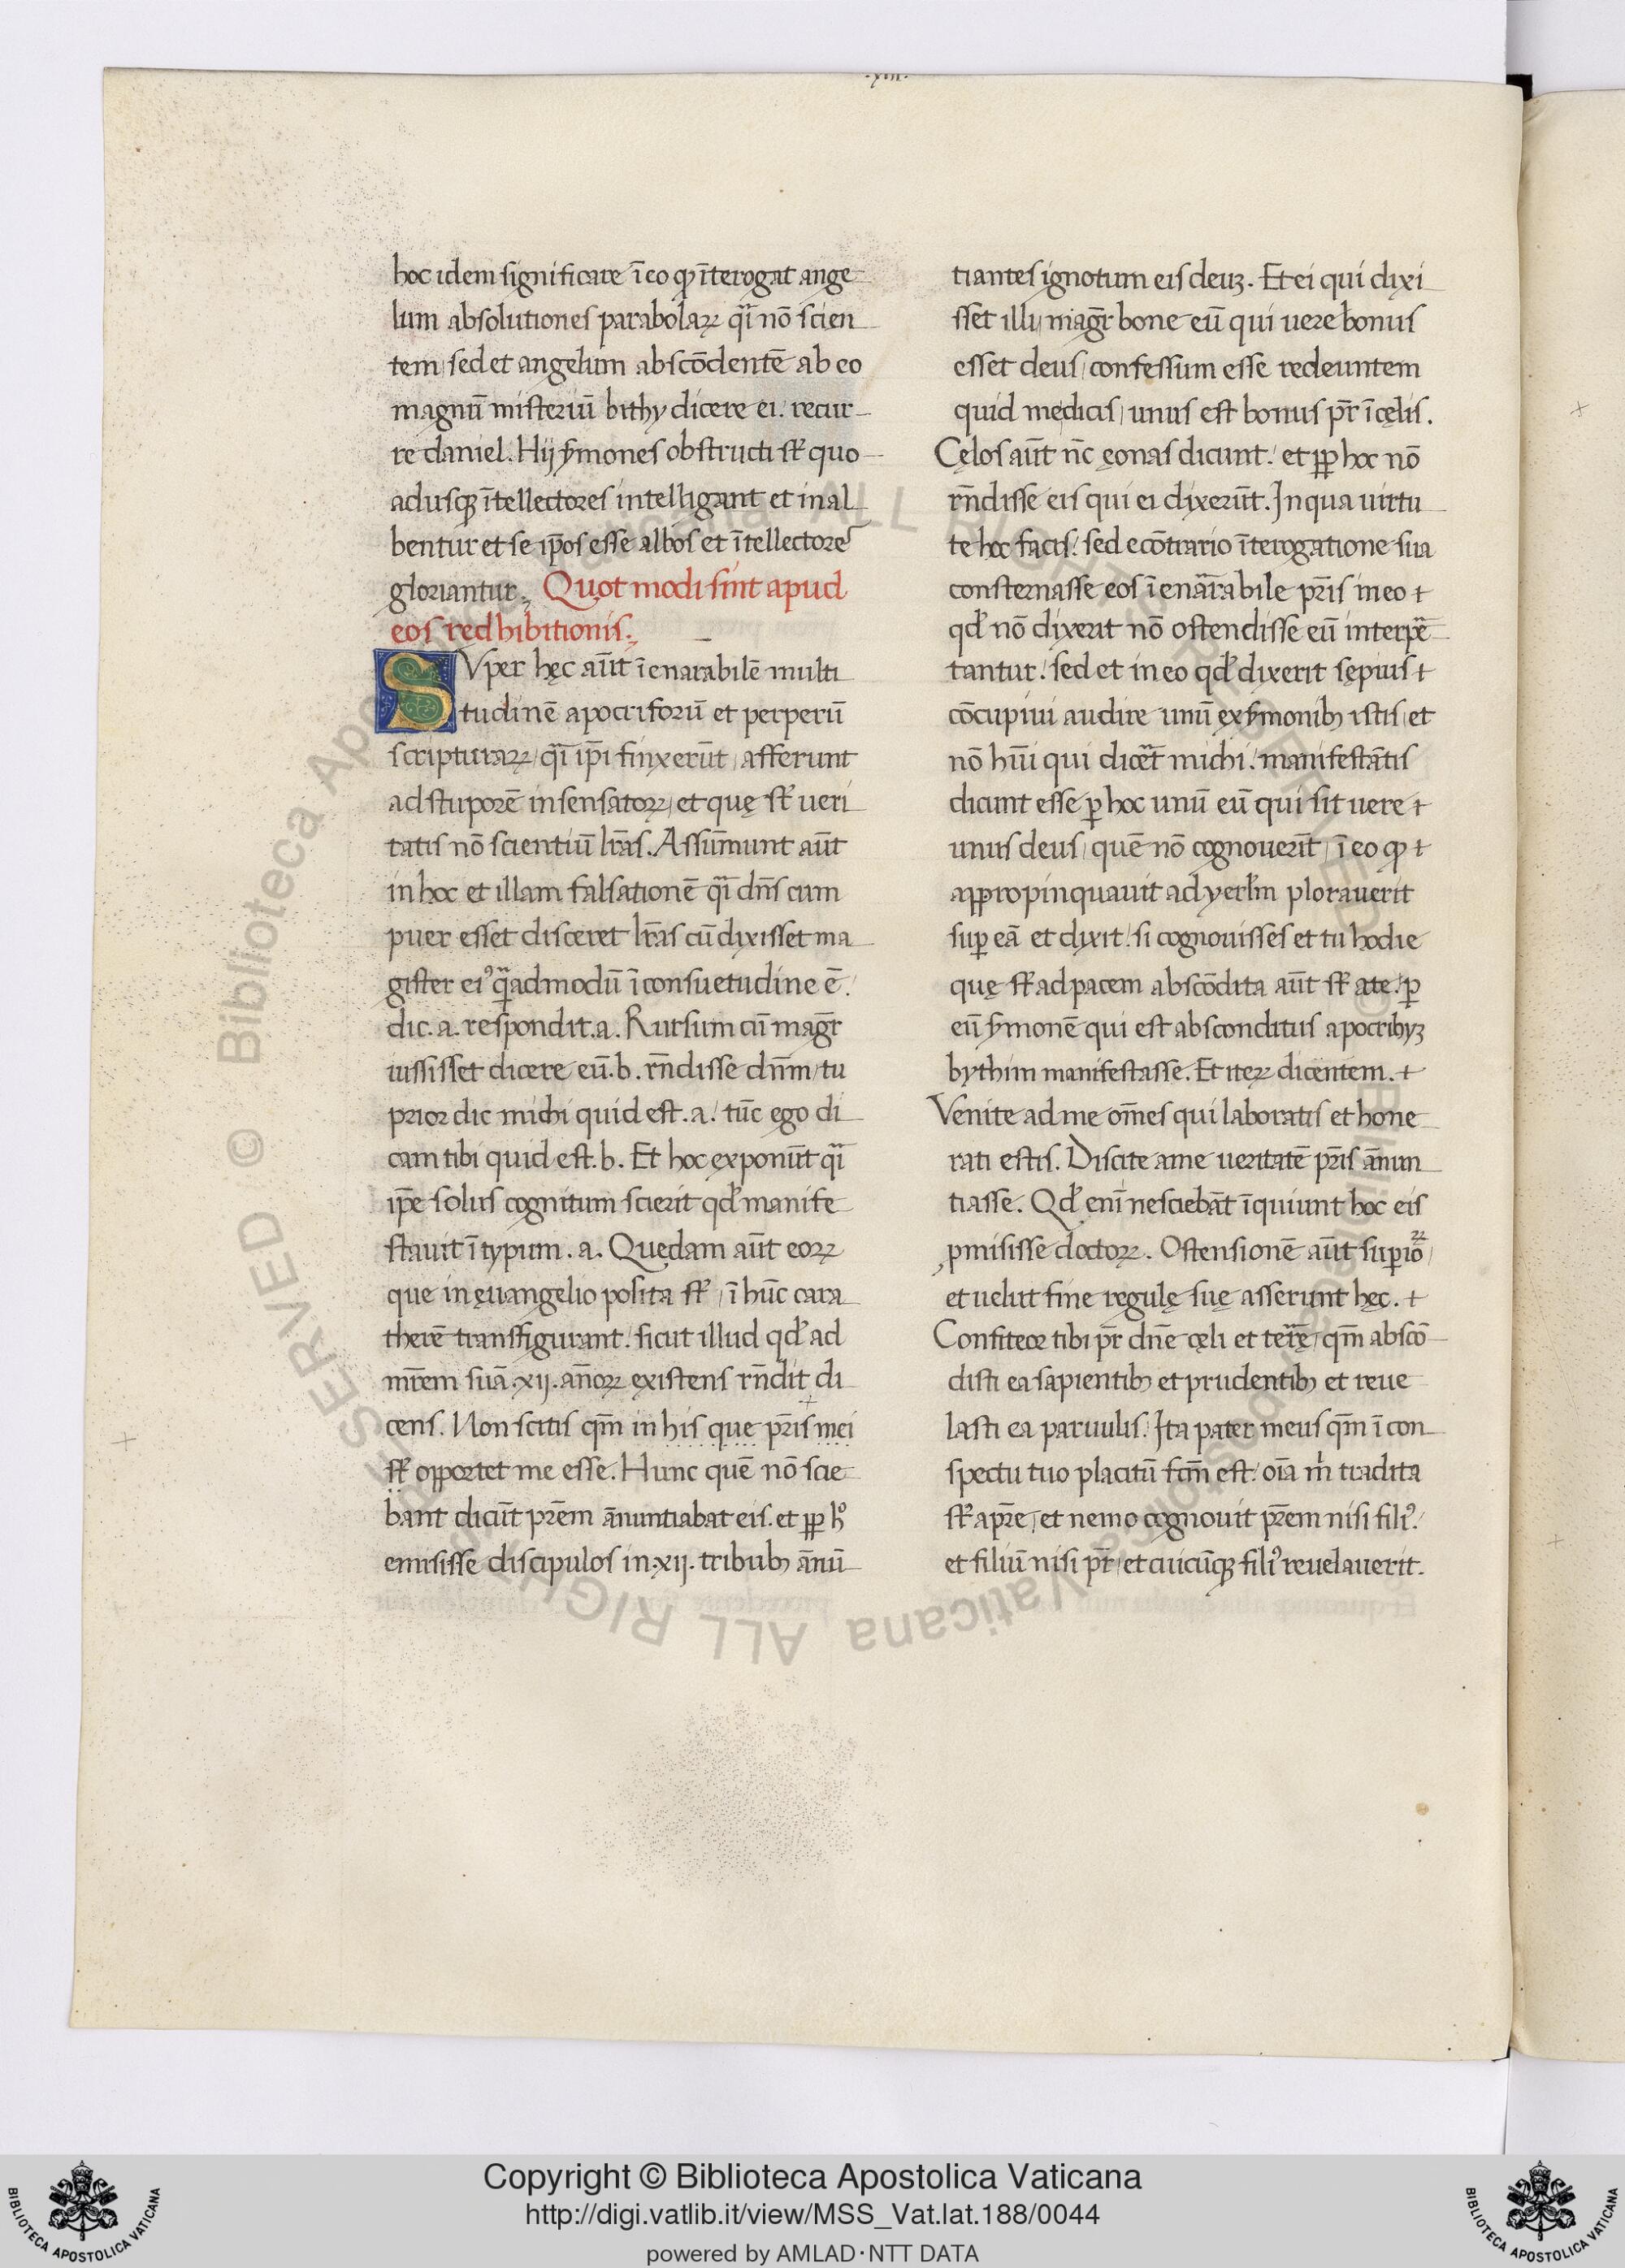 .xiii.
hoc idem significare ī eo ꝙ īterogat ange
lum absolutiones parabolaꝝ q̄i nō scien
tem / sed et angelum abscōdentē ab eo
magnū misteriū bithy dicere ei. recur
re daniel. Hij ẜmones obstructi st̄ quo
adusqꝫ ītellectores intelligant et inal
bentur et se ip̄os esse albos et ītellectores
gloriantur. Quot modi sint apud
eos redhibitionis.
SVper hęc aūt īenarabilē multi
tudinē apocriforū et perperū
scripturaꝝ / q̄i ip̄i finxerūt / afferunt
ad stuporē insensatoꝝ / et quę st̄ ueri
tatis nō scientiū lr̄as. Assūmunt aūt
in hoc et illam falsationē q̄i dn̄s cum
puer esset disceret lr̄as cū dixisset ma
gister eiꝰ q̄ad모dū ī consuetudine ē.
dic. a. respondit. a. Rursum cū magr̄
iussisset dicere eū. b. rn̄disse dn̄m / tu
prior dic michi quid est. a. tūc ego di
cam tibi quid est. b. Et hoc exponūt q̄i
ip̄e solus cognitum scierit qd̄ manife
stauit ī typum. a. Quedam aūt eoꝝ
que in ęuangelio posita st̄ / ī hūc cara
therē transfigurant. sicut illud qd̄ ad
mr̄em suā .xij. an̄oꝝ existens rn̄dit di
cens. Non scitis qm̄ in his que pr̄is mei
st̄ opportet me esse. Hunc quē nō scie
bant dicūt pr̄em ānuntiabat eis. et ꝓp hº
emisisse discipulos in .xij. tribubꝫ ānū
tiantes ignotum eis deuꝫ. Et ei qui dixi
sset illi / magr̄ bone eū qui uere bonus
esset deus / confessum esse redeuntem
quid me dicis / unus est bonus pr̄ ī cęlis.
Cęlos aūt nc̄ ęonas dicunt. et ꝓp hoc nō
rn̄disse eis qui ei dixerūt. In qua uirtu
te hoc facis. sed econ̄trario īterogatione sua
consternasse eos ī enār̄abile pr̄is in eo +
qd̄ nō dixerit nō ostendisse eū interp̄e
tantur. sed et in eo qd̄ dixerit sępius +
cōcupiui audire unū ex ẜmonibꝫ istis / et
nō hūi qui dicēt michi. manifestātis
dicunt esse ꝑ hoc unū eū qui sit uere +
unus deus / quē nō cognouerīt / ī eo ꝙ +
appropinquauit ad yerl̄m plorauerit
suꝑ eā et dixit. si cognouisses et tu hodie
quę st̄ ad pacem abscōdita aūt st̄ a te. ꝑ
eū ẜmonē qui est absconditus apocribyꝫ
bythim manifestasse. Et iteꝝ dicentem. +
Venite ad me om̄es qui laboratis et hone
rati estis. Discite a me ueritatē pr̄is ānun
tiasse. Qd̄ eni nesciebāt īquiunt hoc eis
ꝓmisisse doctoꝝ. Ostensionē aūt suꝑioꝝ
et uelut fine regulę suę asserunt hęc. +
Confiteor tibi pr̄ dn̄e cęli et terrę / qm̄ abscō
disti ea sapientibꝫ et prudentibꝫ et reue
lasti ea paruulis. Ita pater meus qm̄ ī con
spectu tuo placitū fc̄m est. oīa m̄ tradita
st̄ a pr̄e / et nemo cognouit pr̄em nisi filiꝰ.
et filiū nisi pr̄ / et cuicūqꝫ filiꝰ reuelauerit.
© Biblioteca Apostolica Vaticana ALL RIGHTS RESERVED
Copyright © Biblioteca Apostolica Vaticana
http://digi.vatlib.it/view/MSS_Vat.lat.188/0044
powered by AMLAD·NTT DATA
BIBLIOTECA APOSTOLICA VATICANA
BIBLIOTECA APOSTOLICA VATICANA